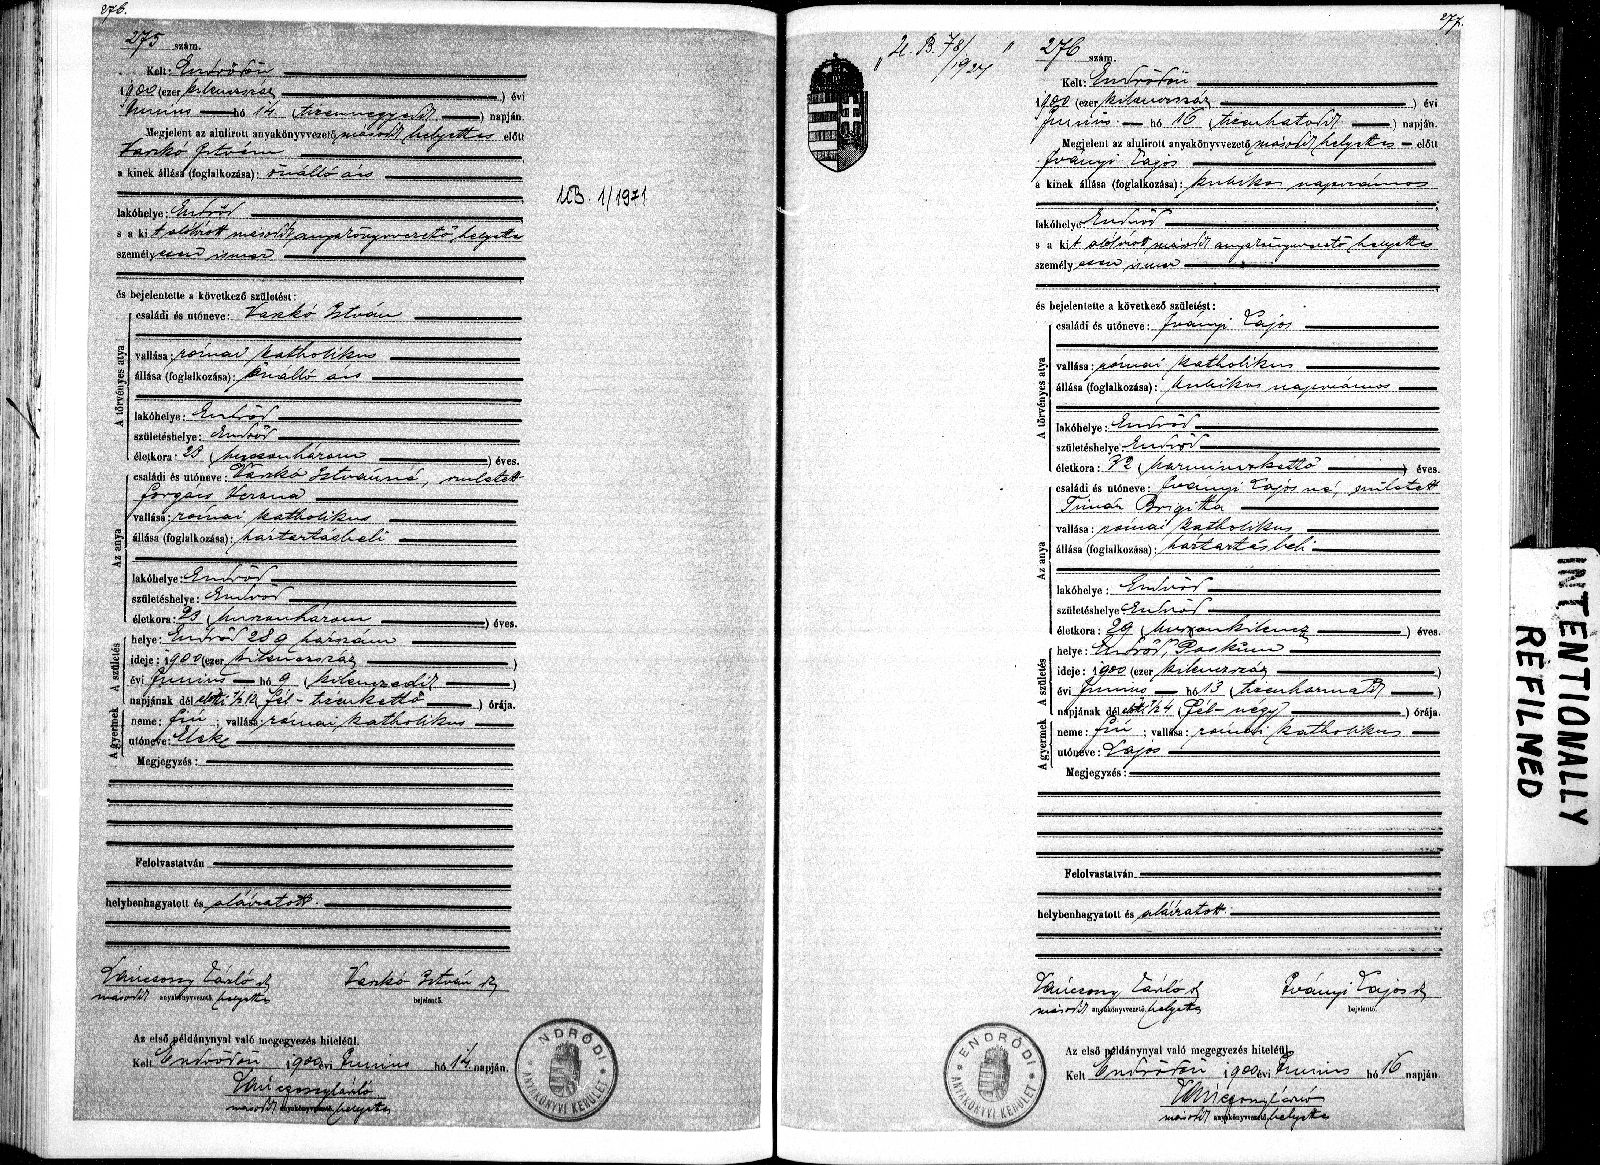 276.
275 szám.
Kelt: Endrődön
1900 (ezer kilencszáz) évi
Junius hó 14 (tizennegyedik) napján.
Megjelent az alulirott anyakönyvvezető második helyettes előtt
Vaskó István
a kinek állása (foglalkozása): önálló ács
lakóhelye: Endrőd
s a kit alólirott második anyakönyvvezető helyettes
személyesen ismer
és bejelentette a következő születést:
A törvényes atya
családi és utóneve: Vaskó István
vallása: római katholikus
állása (foglalkozása): önálló ács
lakóhelye: Endrőd
születéshelye: Endrőd
életkora: 23 (huszonhárom) éves.
Az anya
családi és utóneve: Vaskó Istvánné, született
Forgács Verona
vallása: római katholikus
állása (foglalkozása): háztartásbeli
lakóhelye: Endrőd
születéshelye: Endrőd
életkora: 23 (huszonhárom) éves.
A születés
helye: Endrőd 289 házszám
ideje: 1900 (ezer kilencszáz)
évi Junius hó 9 (kilenczedik)
napjának dél előtti 1/2 12 (fél-tizenkettő) órája.
A gyermek
neme: fiú; vallása: római katholikus
utóneve: Elek
Megjegyzés:
Felolvastatván
helybenhagyatott és aláiratott.
Lánczony László sk
második anyakönyvvezető helyettes
Vaskó István sk
bejelentő.
Az első példánynyal való megegyezés hiteléül.
Kelt Endrődön 1900 évi Junius hó 14. napján.
Lánczony László
második anyakönyvvezető helyettes
ENDRŐDI
ANYAKÖNYVI KERÜLET
UB. 1/1971
277.
"U. B. 78/
/1927 "
276 szám.
Kelt: Endrődön
1900 (ezer kilencszáz) évi
Junius hó 16 (tizenhatodik) napján.
Megjelent az alulirott anyakönyvvezető második helyettes előtt
Iványi Lajos
a kinek állása (foglalkozása): kubikos napszámos
lakóhelye: Endrőd
s a kit alólirott második anyakönyvvezető helyettes
személyesen ismer
és bejelentette a következő születést:
A törvényes atya
családi és utóneve: Iványi Lajos
vallása: római katholikus
állása (foglalkozása): kubikos napszámos
lakóhelye: Endrőd
születéshelye: Endrőd
életkora: 32 (harminczkettő) éves.
Az anya
családi és utóneve: Iványi Lajosné, született
Timár Brigitta
vallása: római katholikus
állása (foglalkozása): háztartásbeli
lakóhelye: Endrőd
születéshelye Endrőd
életkora: 29 (huszonkilencz) éves.
A születés
helye: Endrőd
ideje: 1900 (ezer kilencszáz)
évi Junius hó 13 (tizenharmadik)
napjának dél előtti 1/2 4 (fél-négy) órája.
A gyermek
neme: fiú; vallása: római katholikus
utóneve: Lajos
Megjegyzés:
Felolvastatván
helybenhagyatott és aláiratott.
Lánczony László sk
második anyakönyvvezető helyettes
Iványi Lajos sk
bejelentő.
Az első példánynyal való megegyezés hiteléül.
Kelt Endrődön 1900 évi Junius hó 16 napján.
Lánczony László
második anyakönyvvezető helyettes
ENDRŐDI
ANYAKÖNYVI KERÜLET
INTENTIONALLY
REFILMED